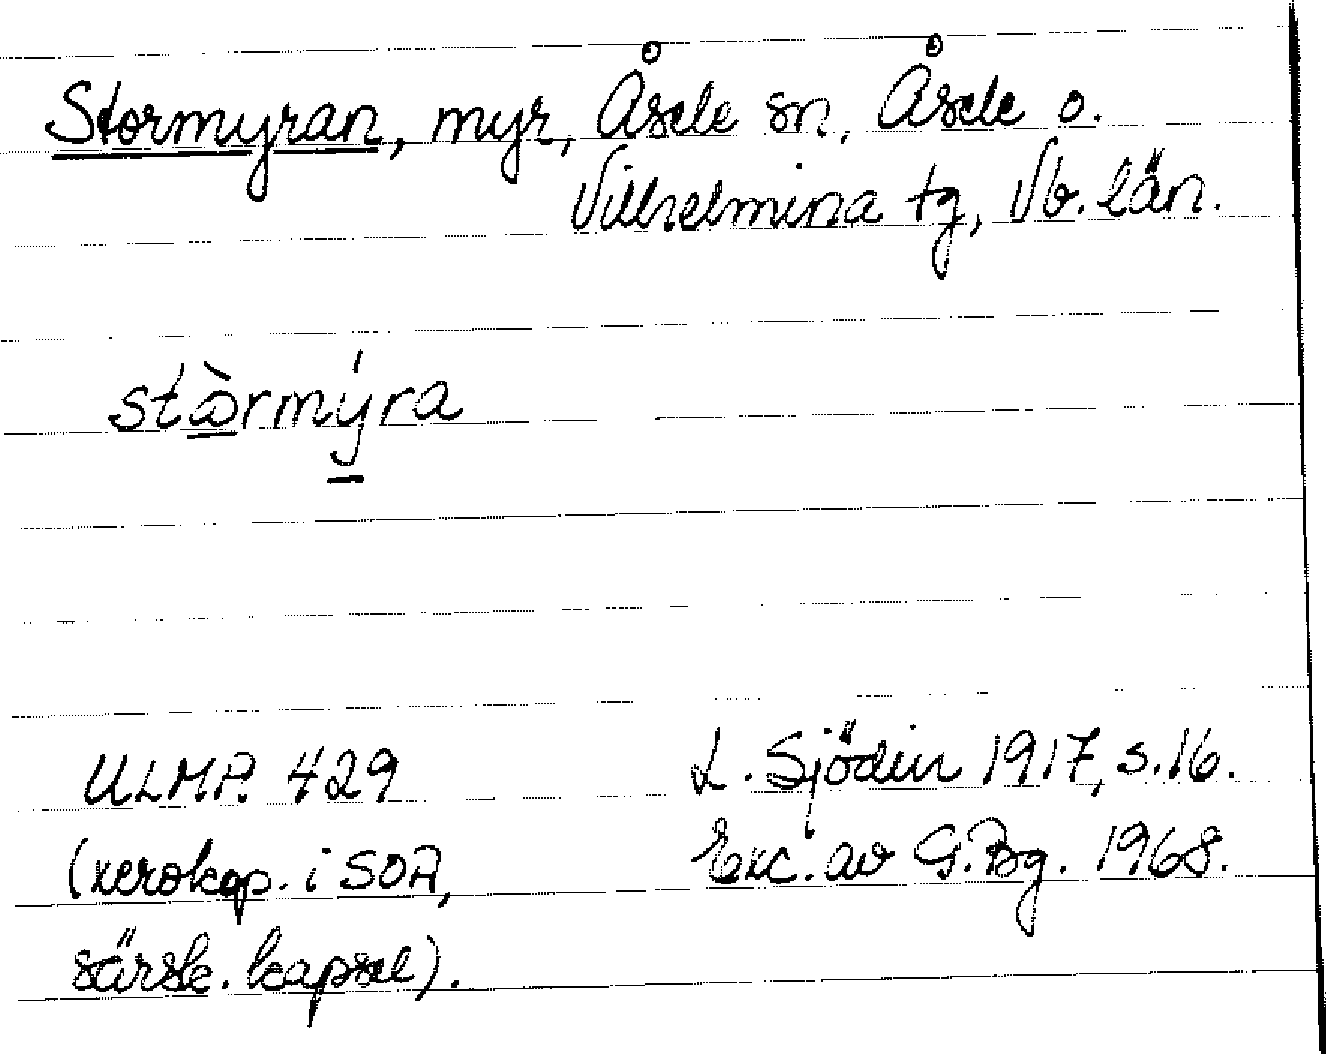 Stormyran, myr, Åsele sn, Åsele o.
Vilhelmina tg, Vb. län.
stɷ̀rmýra
ULMA 429
L. Sjödin 1917, s. 16.
(xerokop. i SOA,
Exc. av G. Bg. 1968.
särsk. kapsel).